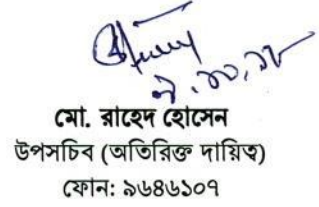 ৭.১০.১৮
মো. রাহেদ হোসেন
উপসচিব (অতিরিক্ত দায়িত্ব)
ফোন: ৯৬৪৬১০৭